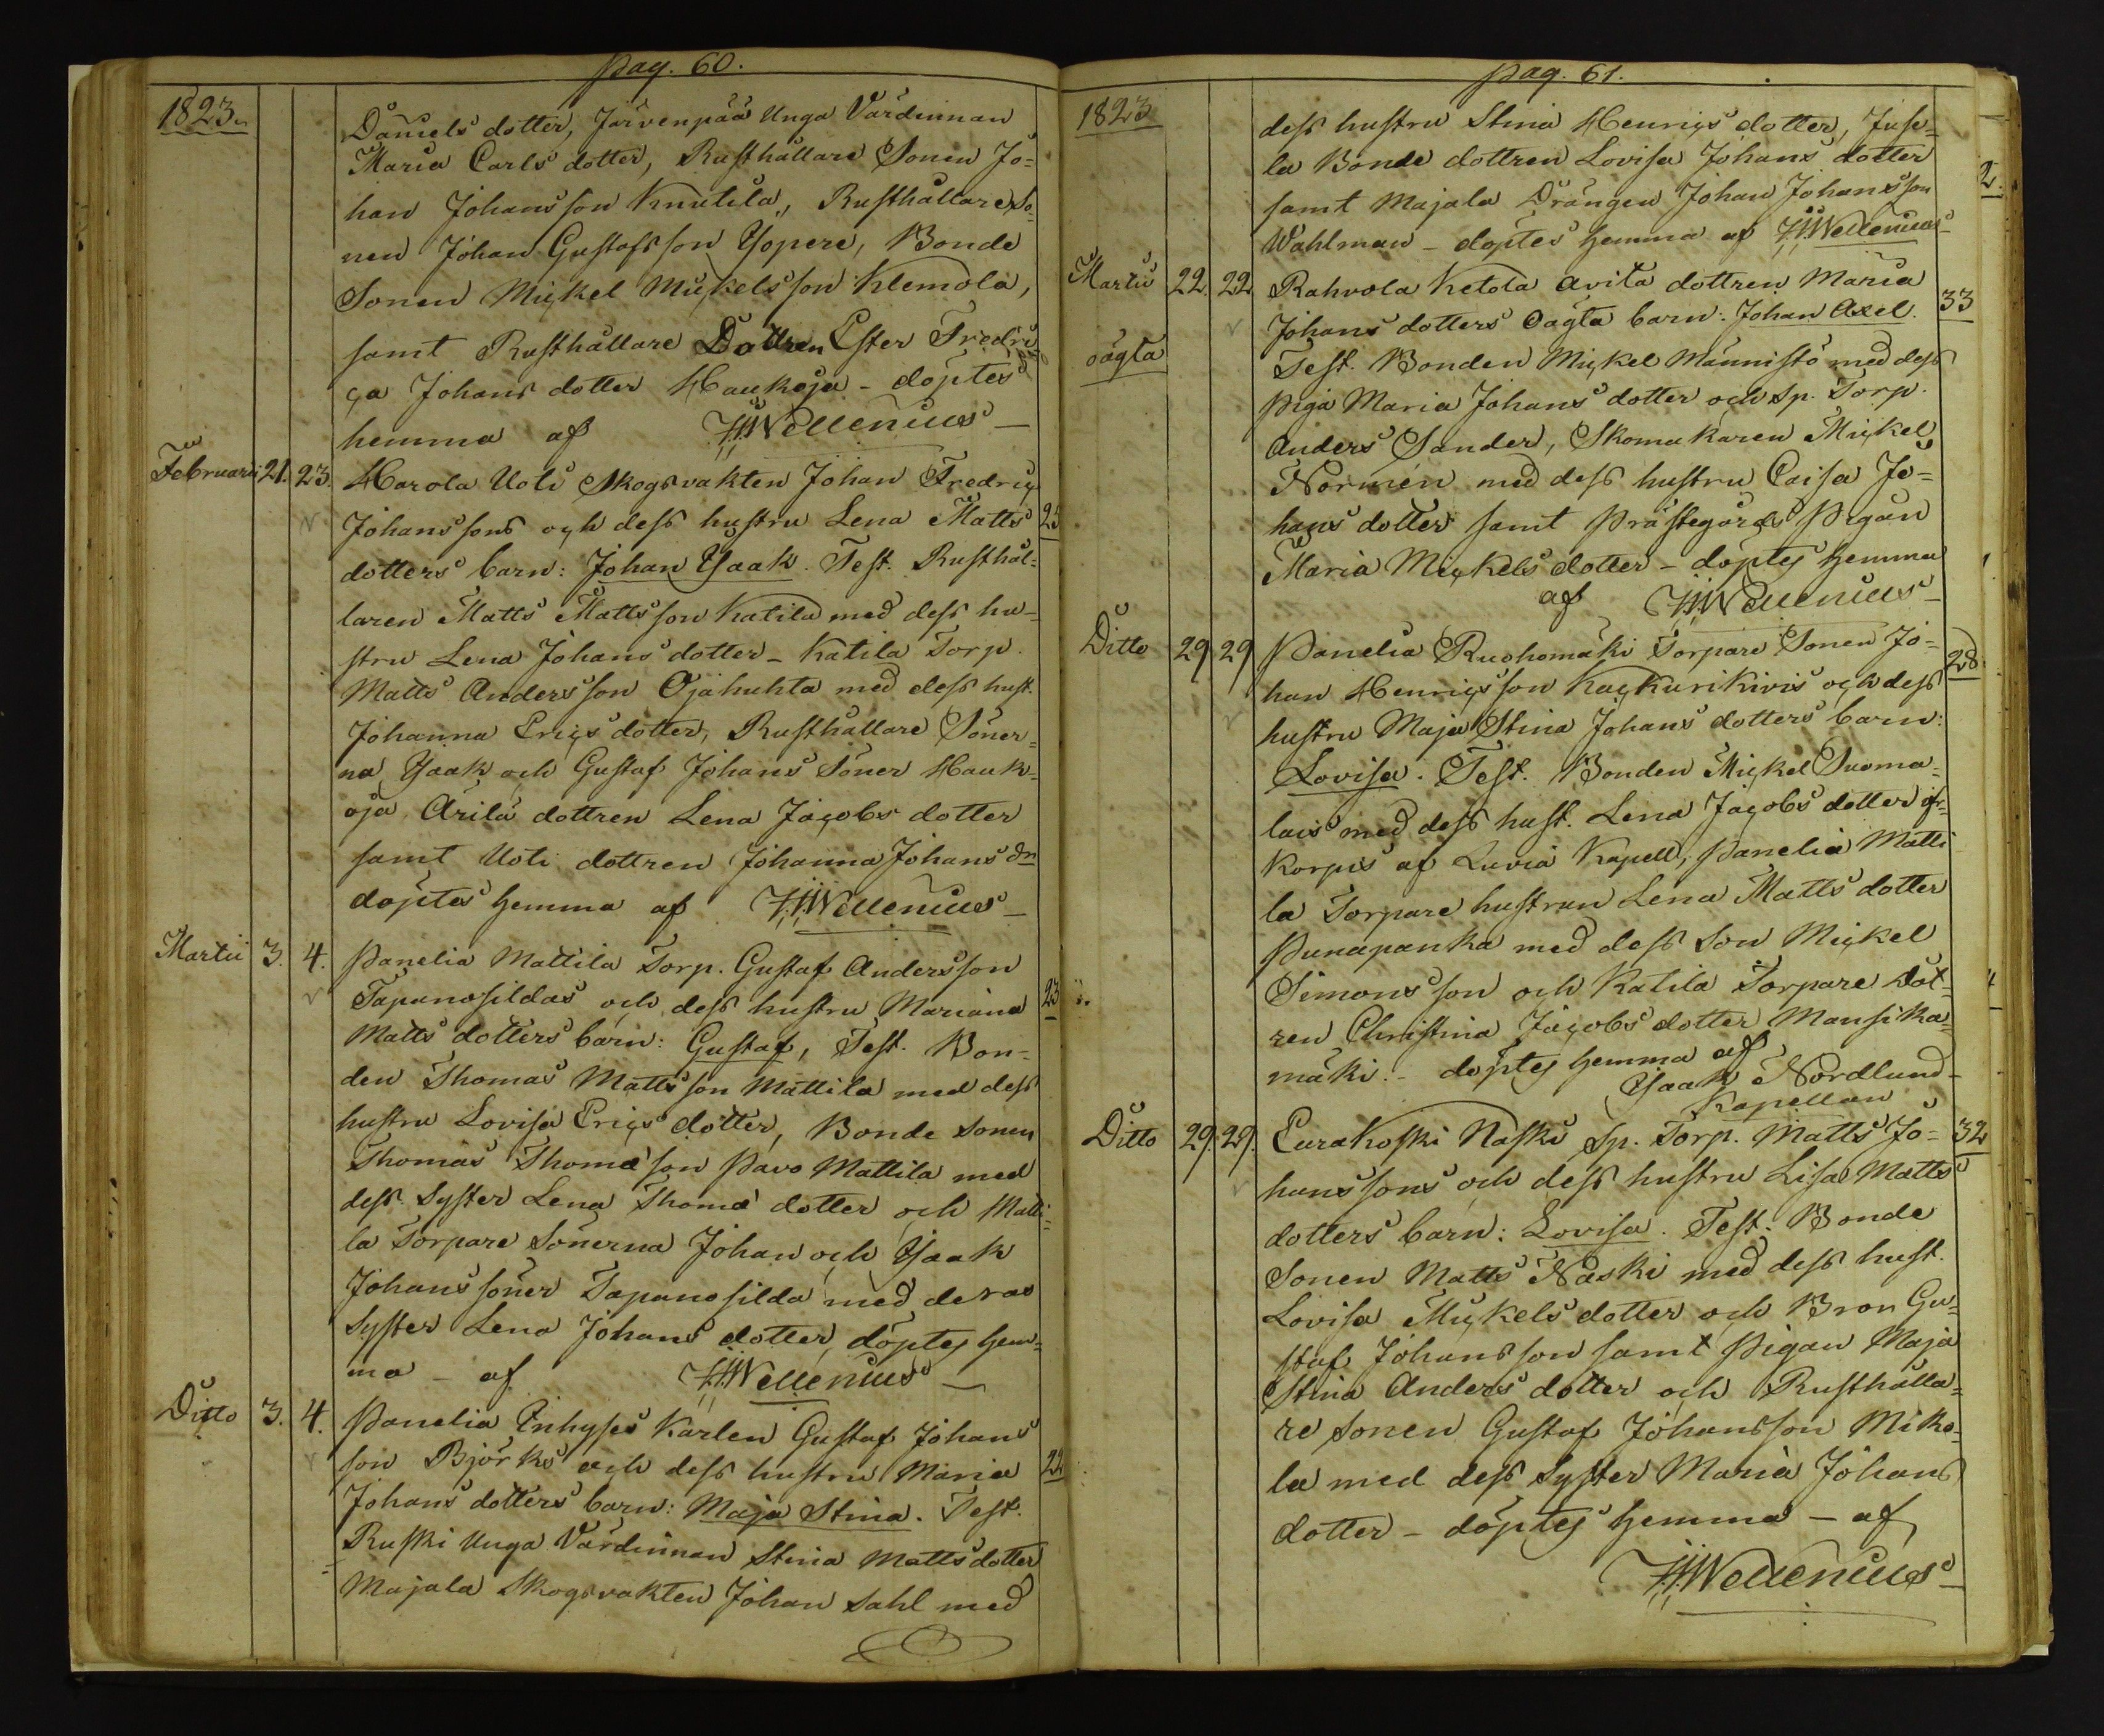 pag. 60.
1823.
Daniels dotter, Järvenpää Unga Värdinnan
Maria Carls dotter, Rusthållare Sonen Jo=
han Johansson Knutila, Rusthållare So=
nen Johan Gustafsson Yopere, Bonde
Sonen Mickel Mickelsson Klemola,
samt Rusthållare Dottren Ester Fredri
ca Johans dotter Haukoja - döptes
hemma af Wellenius
Februarii 21. 23. Harola Uoti Skogsvakten Johan Fredric
Johanssons och dess hustru Lena Matts 25
dotters barn: Johan Isaak. Test. Rusthål=
laren Matts Mattsson Katila med dess hu=
stru Lena Johans dotter - Katila Torp.
Matts Andersson Ojahuhta med dess hust.
Johanna Erics dotter, Rusthållare Söner=
na Isaak och Gustaf Johans Söner Hauk=
oja Ärilä dottren Lena Jacobs dotter
samt Uoti dottren Johanna Johans dr
döptes hemma af Wellenius
Martii 3. 4. Panelia Mattila Torp. Gustaf Andersson
Tapanosildas och dess hustru Mariana 23
Matts dotters barn: Gustaf, Test. Bon=
den Thomas Mattsson Mattila med dess
hustru Lovisa Erics dotter, Bonde Sonen
Thomas Thomæson Pavo Mattila med
dess Syster Lena Thomæ dotter och Matti=
la Torpare Sönerna Johan och Isaak
Johanssöner Tapanosilda med deras
Syster Lena Johans dotter, döptes hem=
ma - af Wellenius
Ditto 3. 4. Panelia Inhyses Karlen Gustaf Johans
son Björks och dess hustru Maria 22
Johans dotters barn: Maja Stina. Test.
Ruski Unga Värdinnan Stina Matts dotter
Majala Skogsvakten Johan Sahl med
pag. 61.
1823
dess hustru Stina Henrics dotter, Juse=
la Bonde dottren Lovisa Johans dotter
samt Majala Drängen Johan Johansson
Wahlman - döptes hemma af Wellenius
Martii 22. 22 Rahvola Ketola avita dottren Maria
Johans dotters Oägta barn: Johan Axel. 33
oägta
Test. Bonden Mickel Männistö med dess
Piga Maria Johans dotter och Sp. Torp.
Anders Sander, Skomakaren Mickel
Normen med dess hustru Caisa Jo=
hans dotter samt Prästegårds Pigan
Maria Mickels dotter - döptes hemma
af Wellenius
Ditto 29 29 Panelia Ruohomäki Torpare Sonen Jo=
han Henricsson Kackurikivis och dess 28
hustru Maja Stina Johans dotters barn:
Lovisa. Test. Bonden Mickel Suoma=
lais med dess hust. Lena Jacobs dotter
Korpis af Luvia Kapell, Panelia Matti
la Torpare hustrun Lena Matts dotter
Punapanka med dess Son Mickel
Simonsson och Katila Torpare Dot=
ren Christina Jacobs dotter Mansika=
mäki. - döptes hemma af
Isaak Nordlund
Kapellan
Ditto 29. 29. Eurakoski Naski Sp. Torp. Matts Jo= 32
hanssons och dess hustru Lisa Matts
dotters barn: Lovisa. Test. Bonde
Sonen Matts Naski med dess hust.
Lovisa Mickels dotter och Bron Gu=
staf Johansson samt Pigan Maja
Stina Anders dotter och Rusthålla=
re Sonen Gustaf Johansson Miko=
la med dess Syster Maria Johans
dotter - döptes hemma - af
Wellenius
2.